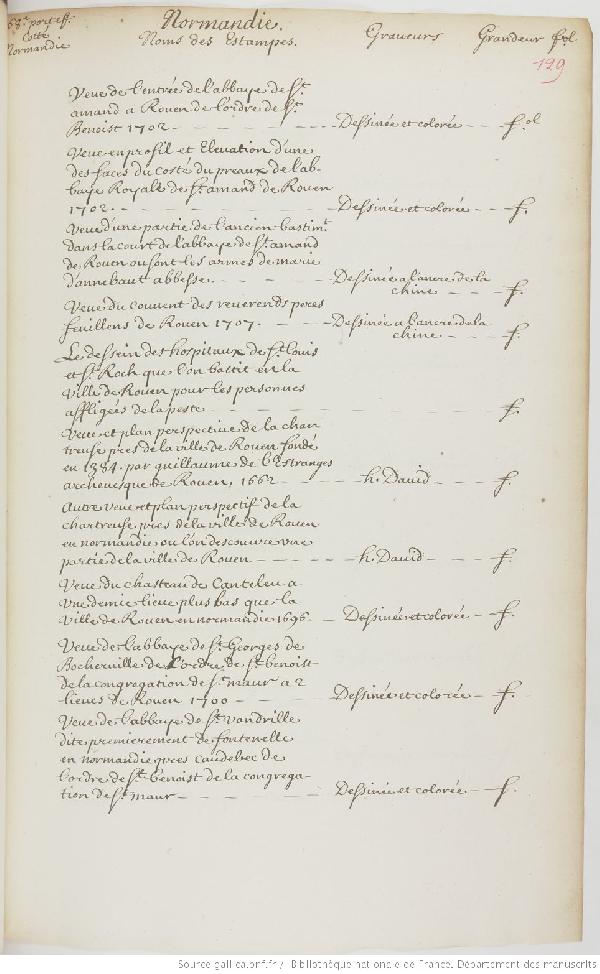 68e. portef.
Costé
Normandie
Normandie.
Noms des Estampes. Graveurs Grandeur fol.
129
Veue de l'entrée de l'abbaye de St.
amand a Rouen de l'ordre de St.
Benoist 1702 - Dessinée et colorée - fol
Veue en profil et Elevation d'une
des faces du costé du preaux de l'ab-
baye Royale de St. amand de Rouen
1702. - Dessinée et colorée - f.
Veue d'une partie de l'ancien bastimt.
dans la court de l'abbaye de St. amand
de Rouen ou sont les armes de marie
d'annebaut abbesse. - Dessinée a l'ancre de la
chine - f.
Veue du couvent des reverends peres
feuillens de Rouen 1707. - Dessinée a l'ancre de la
chine - f.
Le dessein des hospitaux de St. Louis
et St. Roch que l'on bastit en la
ville de Rouen pour les personnes
affligées de la peste - f.
Veue et plan perspective de la char
treuse pres de la ville de Rouen fondé
en 1384. par guillaume de l'Estranges
archevesque de Rouen, 1662 - h. David - f.
Autre veue et plan perspectif de la
chartreuse pres de la ville de Rouen
en normandie ou l'on descouvre une
partie de la ville de Rouen - h. David - f.
Veue du chasteau de Canteleu a
une demie lieue plus bas que la
ville de Rouen en normandie 1696. - Dessinée et colorée - f.
Veue de l'abbaye de St. Georges de
Bocherville de l'ordre de St. benoist
de la congregation de St. maur a 2
lieues de Rouen 1700 - Dessinée et colorée - f.
Veue de l'abbaye de St. Vandrille
dite premierement de fontenelle
en normandie pres caudebec de
l'ordre de St. benoist de la congrega-
tion de St. maur - Dessinée et colorée - f.
Source gallica.bnf.fr / Bibliothèque nationale de France. Département des manuscrits